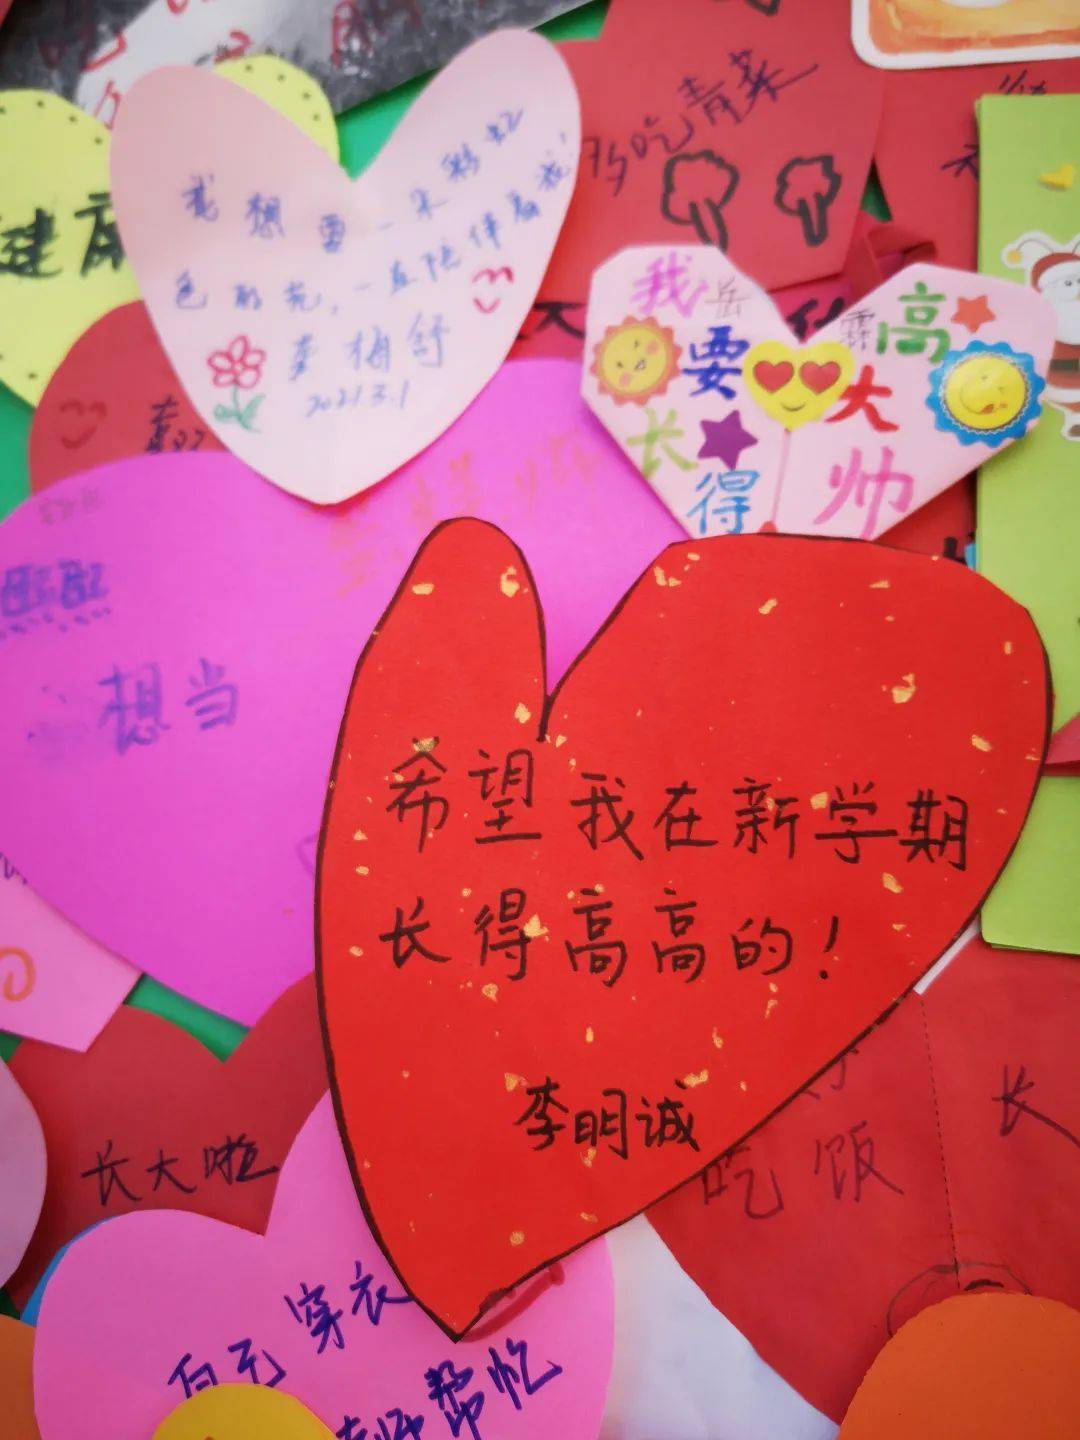 多吃青菜
健康
我想要一朵彩虹
色的花，一直陪伴着我！
李梅舒
2021.3.1
我要长得高大帅
岳霖
熙熙
想当
希望我在新学期
长得高高的！
李明诚
长大啦
吃饭
长
穿衣
帮忙